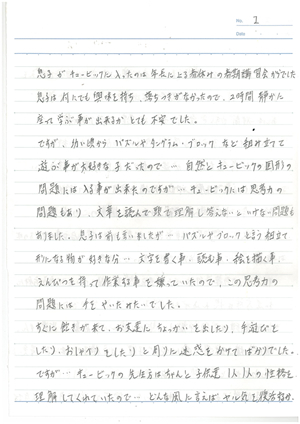 No. 1
Date
息子がキュービックに入ったのは年長になる春休みの春期講習会からでした
息子は何にでも興味を持ち、落ちつきがなかったので、2時間静かに
座って学ぶ事が出来るかとても不安でした。
ですが、幼い頃からパズルやタングラム・ブロックなど組み立てて
遊ぶ事が大好きな子だったので…自然とキュービックの図形の
問題には入る事が出来たのですが…キュービックには思考力の
問題もあり、文章を読んで頭で理解し答えないといけない問題も
ありました。息子は前も言いましたが…パズルやブロックという組立て
になる物が好きな分…文字を書く事、読む事、絵を描く事、
えんぴつを持って作業する事を嫌っていたので、この思考力の
問題には手をやいたみたいでした。
すぐに飽きが来て、お友達にちょっかいを出したり、手遊びを
したり、おしゃべりをしたりと周りに迷惑をかけてばかりでした。
ですが…キュービックの先生方はちゃんと子供達1人1人の性格を
理解してくれていたので…どんな風に言えばヤル気を